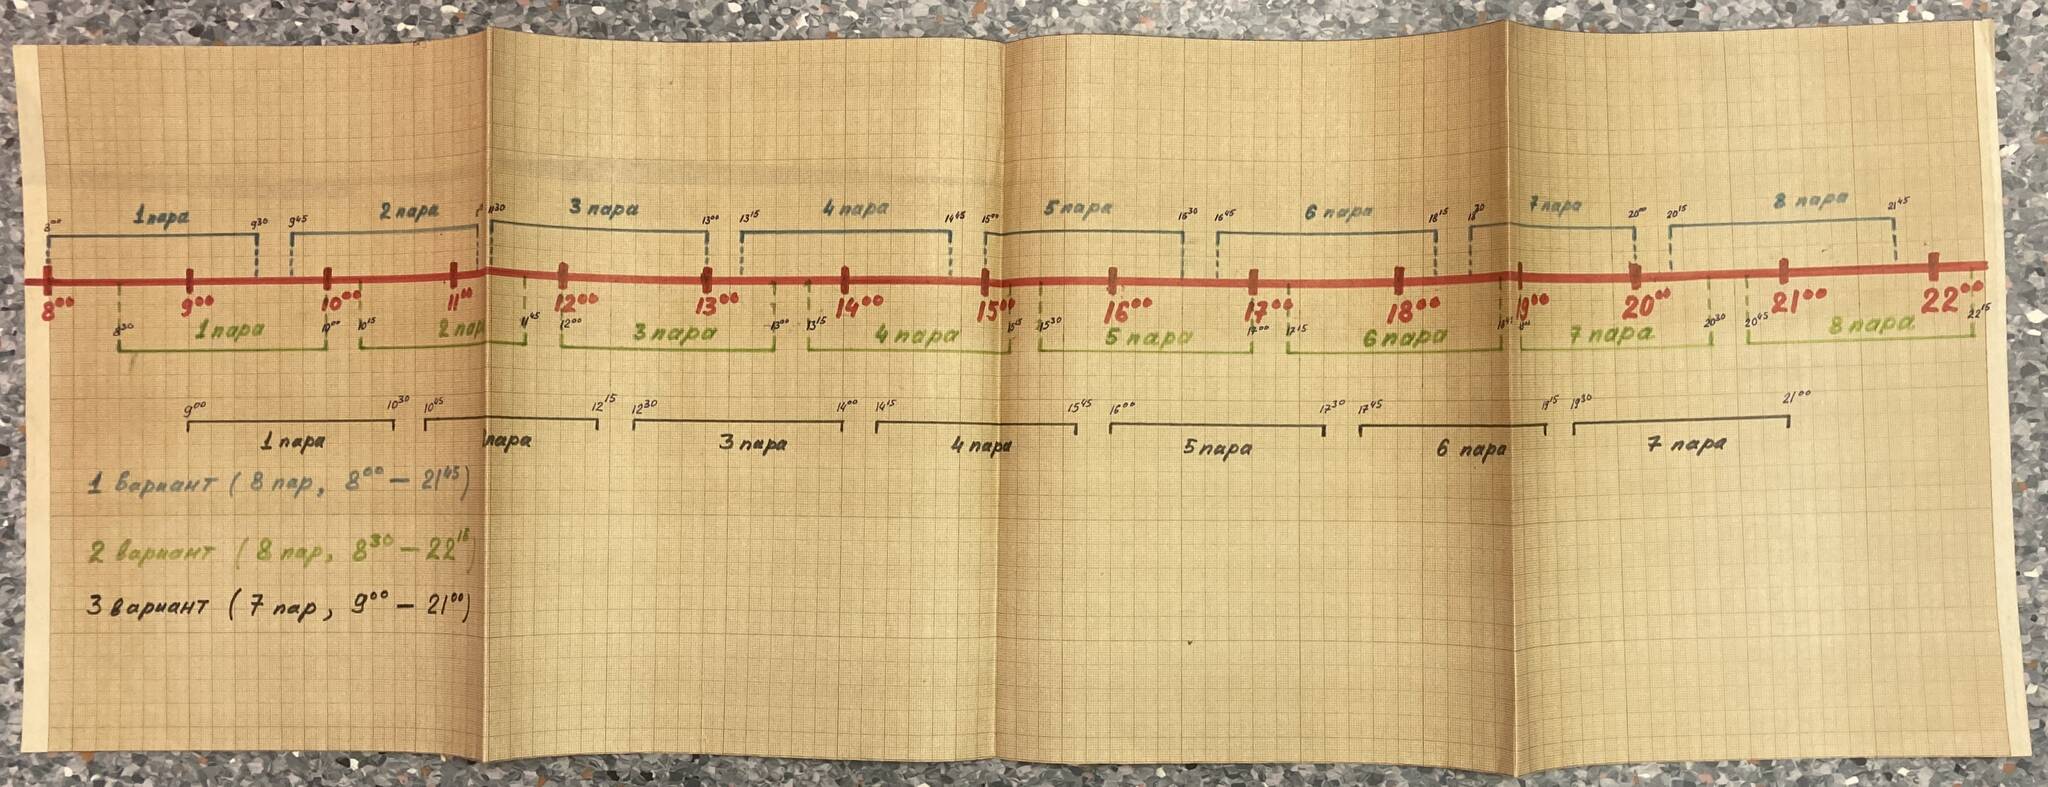 1 пара 2 пара 3 пара 4 пара 5 пара 6 пара 7 пара 8 пара
8⁰⁰ 9³⁰ 9⁴⁵ 11³⁰ 13⁰⁰ 13¹⁵ 14⁴⁵ 15⁰⁰ 16³⁰ 16⁴⁵ 18¹⁵ 18³⁰ 20⁰⁰ 20¹⁵ 21⁴⁵
8⁰⁰ 9⁰⁰ 10⁰⁰ 11⁰⁰ 12⁰⁰ 13⁰⁰ 14⁰⁰ 15⁰⁰ 16⁰⁰ 17⁰⁰ 18⁰⁰ 19⁰⁰ 20⁰⁰ 21⁰⁰ 22⁰⁰
8³⁰ 10¹⁵ 11⁴⁵ 12⁰⁰ 13¹⁵ 15¹⁵ 15³⁰ 17⁰⁰ 17¹⁵ 20³⁰ 20⁴⁵ 22¹⁵
1 пара 2 пар 3 пара 4 пара 5 пара 6 пара 7 пара 8 пара
9⁰⁰ 10³⁰ 10⁴⁵ 12¹⁵ 12³⁰ 14⁰⁰ 14¹⁵ 15⁴⁵ 16⁰⁰ 17³⁰ 17⁴⁵ 19¹⁵ 19³⁰ 21⁰⁰
1 пара пара 3 пара 4 пара 5 пара 6 пара 7 пара
1 вариант (8 пар, 8⁰⁰ – 21⁴⁵)
2 вариант (8 пар, 8³⁰ – 22¹⁵
3 вариант (7 пар, 9⁰⁰ – 21⁰⁰)